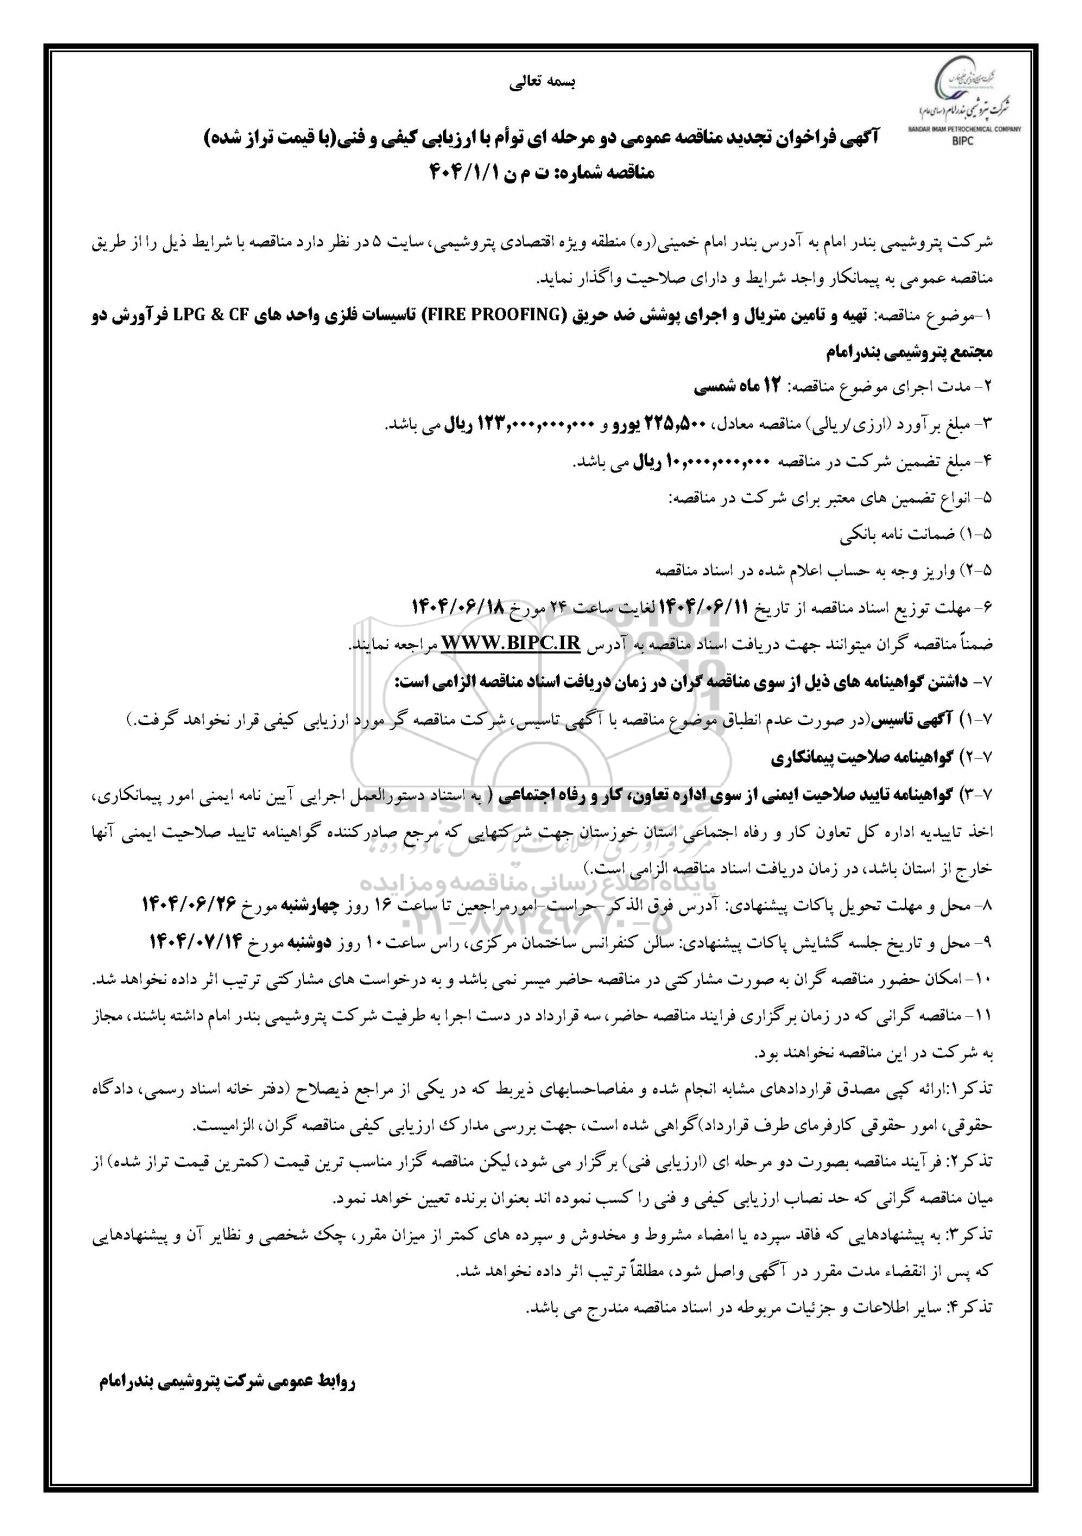 بسمه تعالی
شرکت پتروشیمی بندر امام (سهامی عام)
BANDAR IMAM PETROCHEMICAL COMPANY
BIPC
آگهی فراخوان تجدید مناقصه عمومی دو مرحله ای توأم با ارزیابی کیفی و فنی(با قیمت تراز شده)
مناقصه شماره: ت م ن ۴۰۴/۱/۱
شرکت پتروشیمی بندر امام به آدرس بندر امام خمینی(ره) منطقه ویژه اقتصادی پتروشیمی، سایت ۵ در نظر دارد مناقصه با شرایط ذیل را از طریق
مناقصه عمومی به پیمانکار واجد شرایط و دارای صلاحیت واگذار نماید.
۱-موضوع مناقصه: تهیه و تامین متریال و اجرای پوشش ضد حریق (FIRE PROOFING) تاسیسات فلزی واحد های LPG & CF فرآورش دو
مجتمع پتروشیمی بندرامام
۲- مدت اجرای موضوع مناقصه: ۱۲ ماه شمسی
۳- مبلغ برآورد (ارزی/ریالی) مناقصه معادل، ۲۲۵,۵۰۰ یورو و ۱۲۳,۰۰۰,۰۰۰,۰۰۰ ریال می باشد.
۴- مبلغ تضمین شرکت در مناقصه ۱۰,۰۰۰,۰۰۰,۰۰۰ ریال می باشد.
۵- انواع تضمین های معتبر برای شرکت در مناقصه:
۵-۱) ضمانت نامه بانکی
۵-۲) واریز وجه به حساب اعلام شده در اسناد مناقصه
۶- مهلت توزیع اسناد مناقصه از تاریخ ۱۴۰۴/۰۶/۱۱ لغایت ساعت ۲۴ مورخ ۱۴۰۴/۰۶/۱۸
ضمناً مناقصه گران میتوانند جهت دریافت اسناد مناقصه به آدرس WWW.BIPC.IR مراجعه نمایند.
۷- داشتن گواهینامه های ذیل از سوی مناقصه گران در زمان دریافت اسناد مناقصه الزامی است:
۷-۱) آگهی تاسیس(در صورت عدم انطباق موضوع مناقصه با آگهی تاسیس، شرکت مناقصه گر مورد ارزیابی کیفی قرار نخواهد گرفت.)
۷-۲) گواهینامه صلاحیت پیمانکاری
۷-۳) گواهینامه تایید صلاحیت ایمنی از سوی اداره تعاون، کار و رفاه اجتماعی ( به استناد دستورالعمل اجرایی آیین نامه ایمنی امور پیمانکاری،
ParsNamadData
اخذ تاییدیه اداره کل تعاون کار و رفاه اجتماعی استان خوزستان جهت شرکتهایی که مرجع صادرکننده گواهینامه تایید صلاحیت ایمنی آنها
مرکز فرآوری اطلاعات پارس نماد داده ها
خارج از استان باشد، در زمان دریافت اسناد مناقصه الزامی است.)
پایگاه اطلاع رسانی مناقصه و مزایده
۸- محل و مهلت تحویل پاکات پیشنهادی: آدرس فوق الذکر -حراست-امورمراجعین تا ساعت ۱۶ روز چهارشنبه مورخ ۱۴۰۴/۰۶/۲۶
۰۲۱-۸۸۳۴۹۶۷۰-۵
۹- محل و تاریخ جلسه گشایش پاکات پیشنهادی: سالن کنفرانس ساختمان مرکزی، راس ساعت۱۰ روز دوشنبه مورخ ۱۴۰۴/۰۷/۱۴
۱۰- امکان حضور مناقصه گران به صورت مشارکتی در مناقصه حاضر میسر نمی باشد و به درخواست های مشارکتی ترتیب اثر داده نخواهد شد.
۱۱- مناقصه گرانی که در زمان برگزاری فرایند مناقصه حاضر، سه قرارداد در دست اجرا به طرفیت شرکت پتروشیمی بندر امام داشته باشند، مجاز
به شرکت در این مناقصه نخواهند بود.
تذکر۱:ارائه کپی مصدق قراردادهای مشابه انجام شده و مفاصاحسابهای ذیربط که در یکی از مراجع ذیصلاح (دفتر خانه اسناد رسمی، دادگاه
حقوقی، امور حقوقی کارفرمای طرف قرارداد)گواهی شده است، جهت بررسی مدارک ارزیابی کیفی مناقصه گران، الزامیست.
تذکر۲: فرآیند مناقصه بصورت دو مرحله ای (ارزیابی فنی) برگزار می شود، لیکن مناقصه گزار مناسب ترین قیمت (کمترین قیمت تراز شده) از
میان مناقصه گرانی که حد نصاب ارزیابی کیفی و فنی را کسب نموده اند بعنوان برنده تعیین خواهد نمود.
تذکر۳: به پیشنهادهایی که فاقد سپرده یا امضاء مشروط و مخدوش و سپرده های کمتر از میزان مقرر، چک شخصی و نظایر آن و پیشنهادهایی
که پس از انقضاء مدت مقرر در آگهی واصل شود، مطلقاً ترتیب اثر داده نخواهد شد.
تذکر۴: سایر اطلاعات و جزئیات مربوطه در اسناد مناقصه مندرج می باشد.
روابط عمومی شرکت پتروشیمی بندرامام